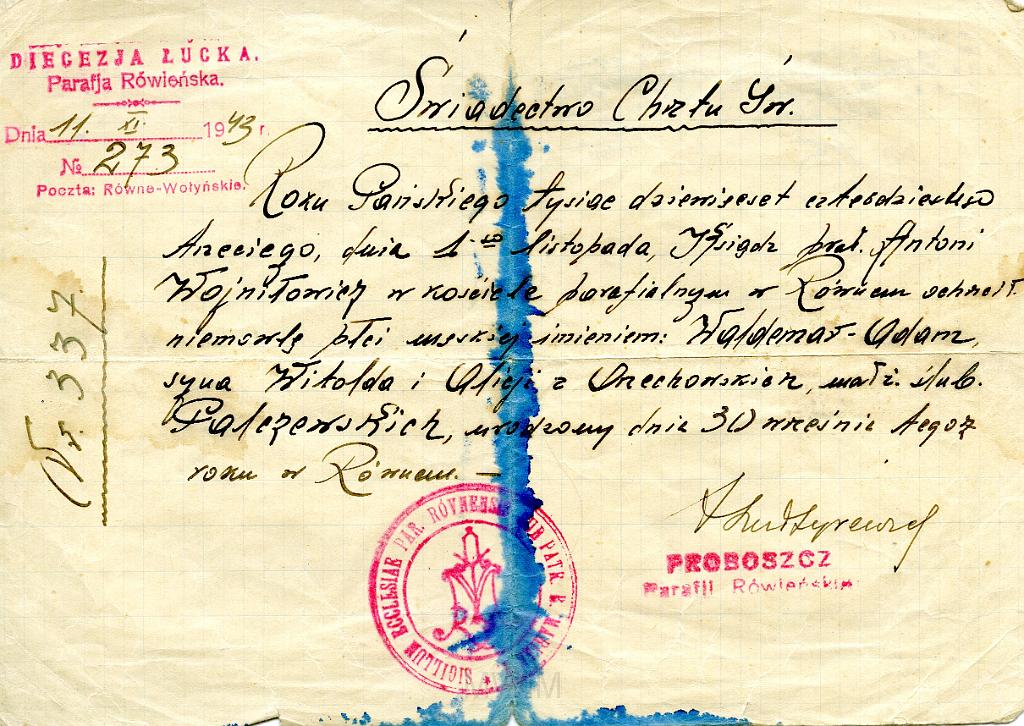 DIECEZJA ŁUCKA.
Parafja Rówieńska.
Dnia 11. XI. 1943 r.
№ 273
Poczta: Równe-Wołyńskie.
Świadectwo Chrztu Św.
Roku Pańskiego tysiąc dziewięcset czterdziestego
trzeciego, dnia 1-go listopada, Ksiądz prał. Antoni
Wojniłowicz w kościele parafialnym w Równem ochrzcił
niemowlę płci męskiej imieniem: Waldemar-Adam,
syna Witolda i Alicji z Orzechowskich, małż. ślub.
Palczewskich, urodzony dnia 30 września tegoż
roku w Równem. —
Nr. 337.
PROBOSZCZ
Parafji Rówieńskiej
SIGILLUM ECCLESIAE PAR. RÓVNENSIS SUB PATR. B. MARIAE